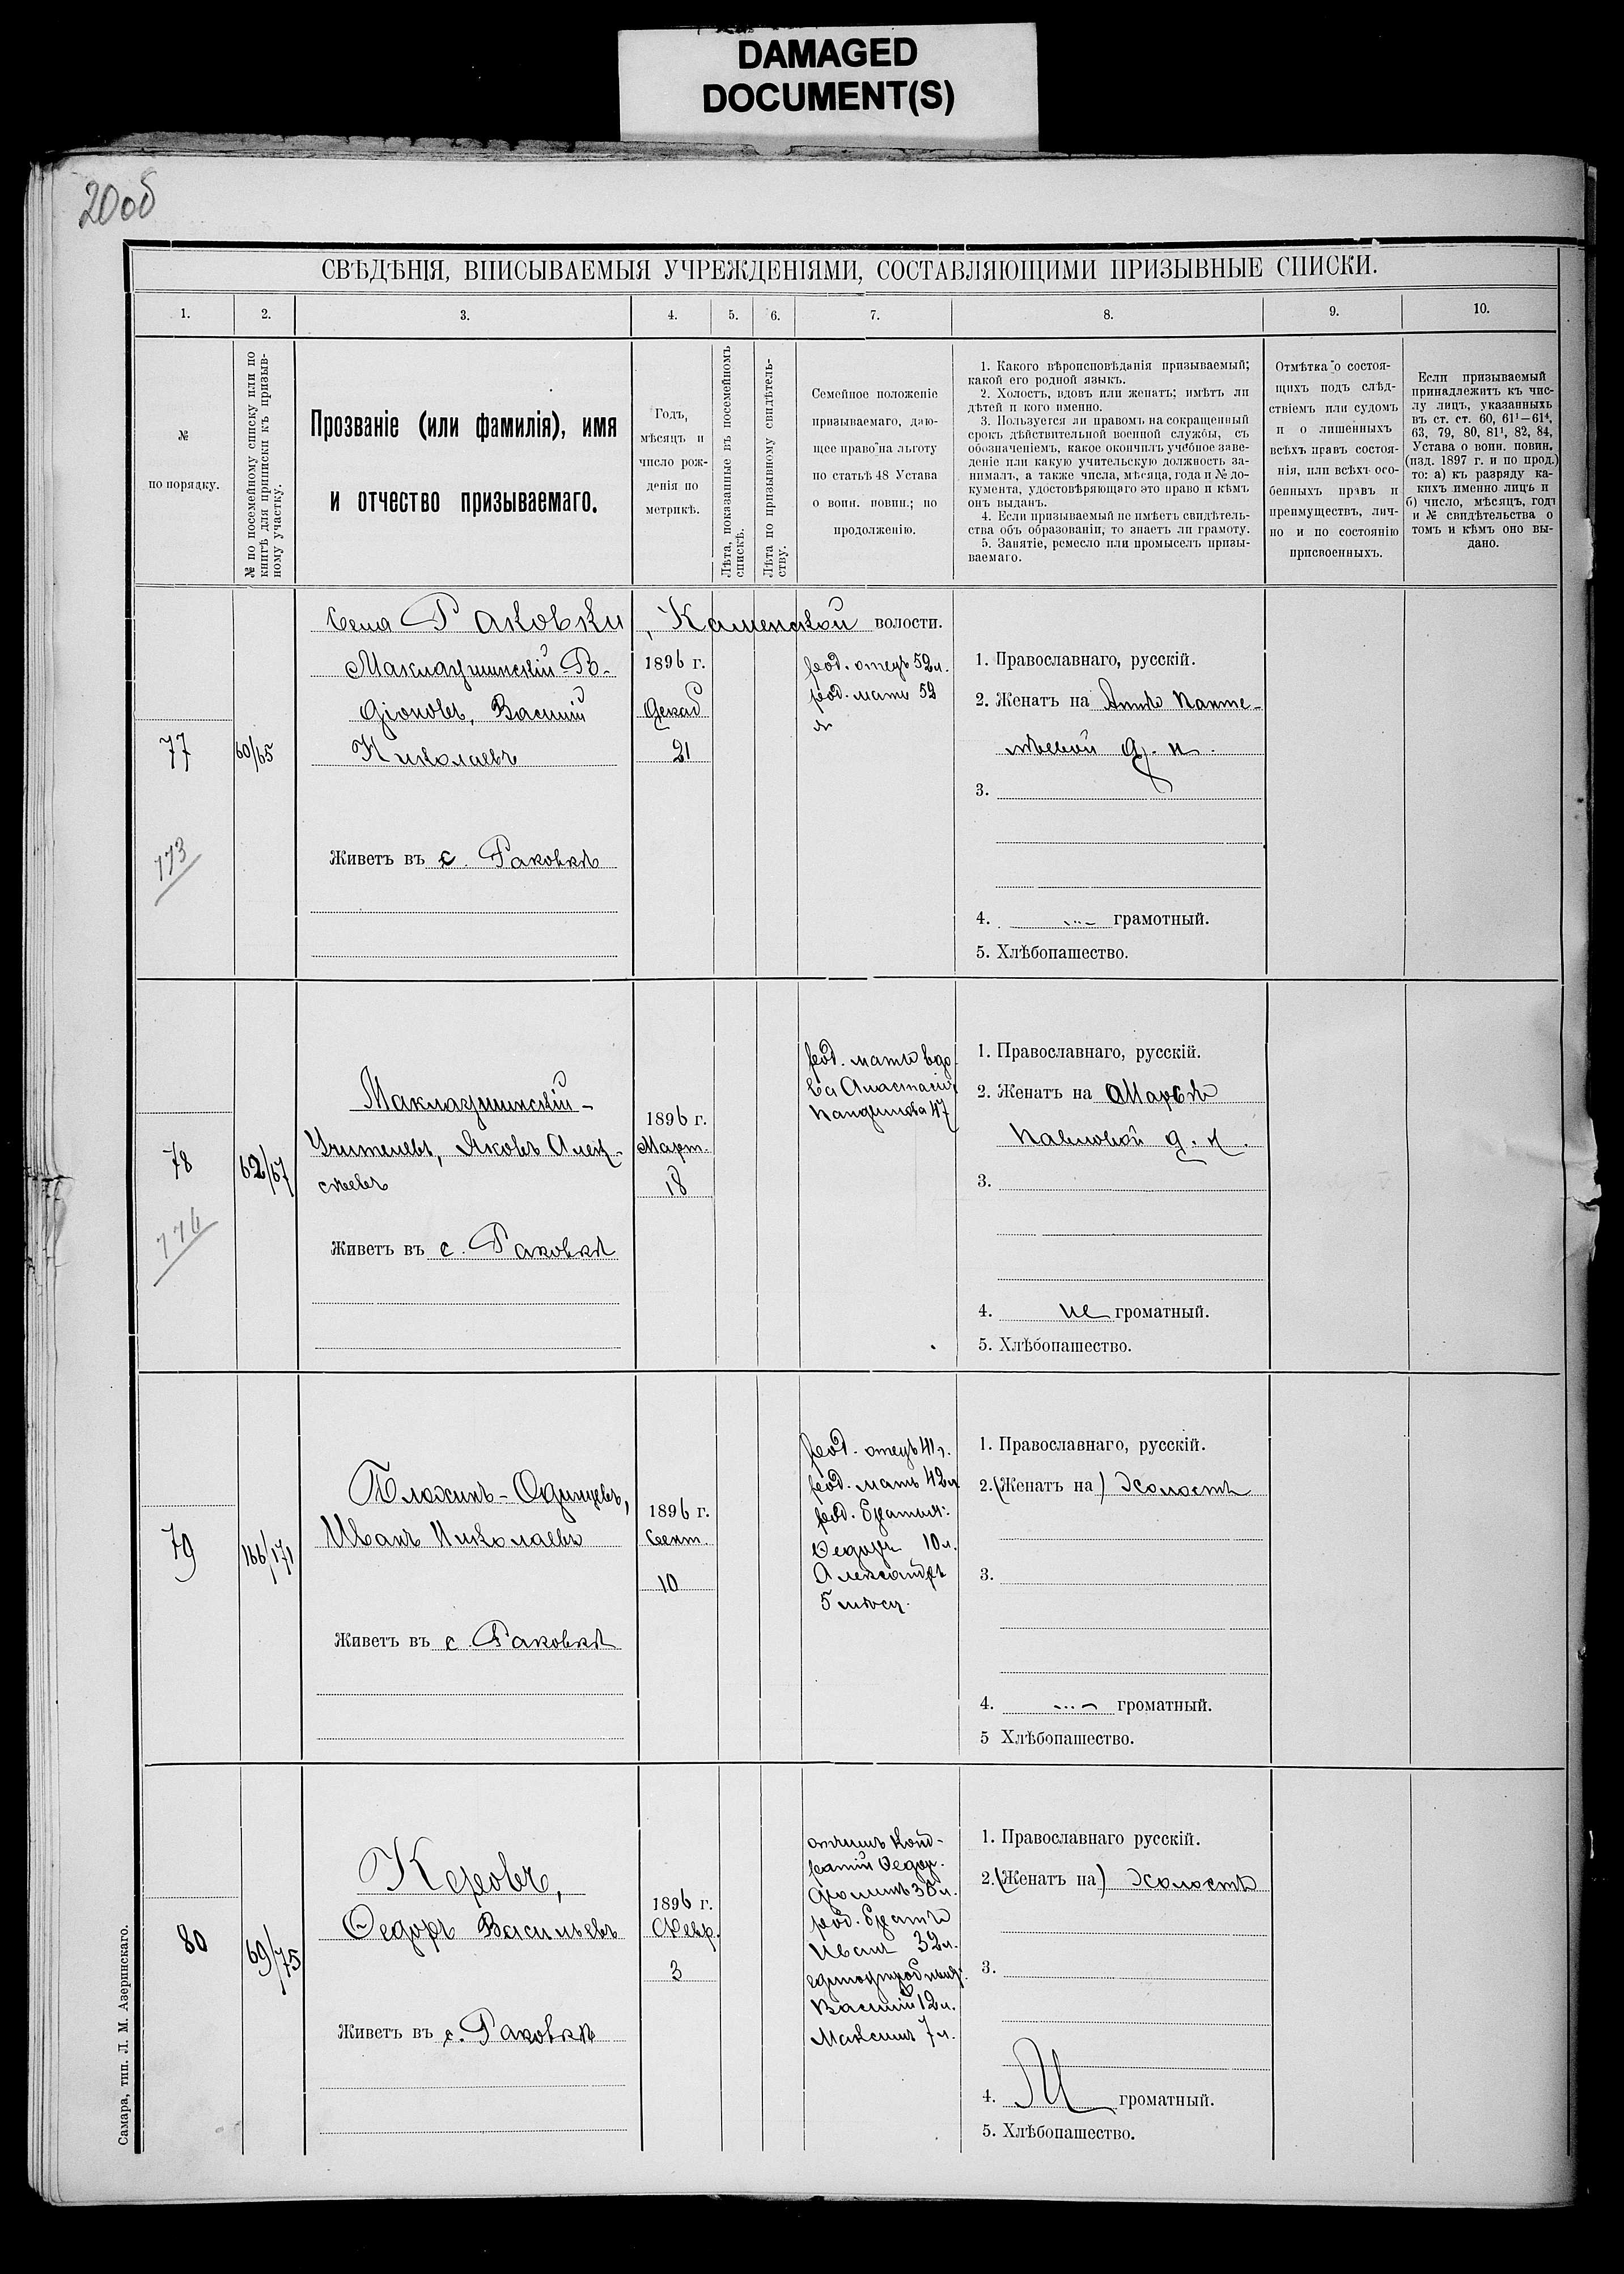 DAMAGED
DOCUMENT(S)
20об
СВѢДѢНІЯ, ВПИСЫВАЕМЫЯ УЧРЕЖДЕНІЯМИ, СОСТАВЛЯЮЩИМИ ПРИЗЫВНЫЕ СПИСКИ.
1. 2. 3. 4. 5. 6. 7. 8. 9. 10.
№
по порядку.
№ по посемейному списку или по
книгѣ для приписки къ призыв-
ному участку.
Прозваніе (или фамилія), имя
и отчество призываемаго.
Годъ,
мѣсяцъ и
число рож-
денія по
метрикѣ.
Лѣта, показанные въ посемейномъ
спискѣ.
Лѣта по призывному свидѣтель-
ству.
Семейное положеніе
призываемаго, даю-
щее право на льготу
по статьѣ 48 Устава
о воин. повин.; по
продолженію.
1. Какого вѣроисповѣданія призываемый;
какой его родной языкъ.
2. Холостъ, вдовъ или женатъ; имѣтъ ли
дѣтей и кого именно.
3. Пользуется ли правомъ на сокращенный
срокъ дѣйствительной военной службы, съ
обозначеніемъ, какое окончилъ учебное заве-
деніе или какую учительскую должность за-
нималъ, а также числа, мѣсяца, года и № до-
кумента, удостовѣряющаго это право и кѣмъ
онъ выданъ.
4. Если призываемый не имѣетъ свидѣтель-
ства объ образованіи, то знаетъ ли грамоту.
5. Занятіе, ремесло или промыселъ призы-
ваемаго.
Отмѣтка о состоя-
щихъ подъ слѣд-
ствіемъ или судомъ
и о лишенныхъ
всѣхъ правъ состоя-
нія, или всѣхъ осо-
бенныхъ правъ и
преимуществъ, лич-
но и по состоянію
присвоенныхъ.
Если призываемый
принадлежитъ къ чис-
лу лицъ, указанныхъ
въ ст. ст. 60, 61¹—61⁴,
63, 79, 80, 81¹, 82, 84,
Устава о воин. повин.
(изд. 1897 г. и по прод.)
то: а) къ разряду ка-
кихъ именно лицъ и
б) число, мѣсяцъ, годъ
и № свидѣтельства о
томъ и кѣмъ оно вы-
дано.
Села Раковки, Каменской волости.
77
173
60/65
Маклаушинскій Ро-
діоновъ, Василій
Николаевъ
Живетъ въ с. Раковкѣ
1896 г.
Декаб
21
род. отецъ 52 л.
род. мать 52
л
1. Православнаго, русскій.
2. Женатъ на Аннѣ Панте-
лѣевой д. н.
3.
4. грамотный.
5. Хлѣбопашество.
78
62/67
Маклаушинскій-
Учителевъ, Яковъ Алек-
сѣевъ
Живетъ въ с. Раковкѣ
1896 г.
Март.
18
род. мать вдо-
ва Анастасія
47
1. Православнаго, русскій.
2. Женатъ на Марѳѣ
Павловой д. н.
3.
4. не громатный.
5. Хлѣбопашество.
79
166/171
Блохинъ-Одинцевъ,
Иванъ Николаевъ
Живетъ въ с. Раковкѣ
1896 г.
Сент.
10
род. отецъ 41 г.
род. мать 42 л
род. братья:
Ѳедоръ 10 л.
Александръ
5 мѣсяц.
1. Православнаго, русскій.
2. (Женатъ на) Холостъ
3.
4. громатный.
5 Хлѣбопашество.
80
69/75
Керовъ,
Ѳедоръ Васильевъ
Живетъ въ с. Раковкѣ
1896 г.
Февр.
3
отчимъ Конд-
ратій Ѳедор.
38 л.
род. братъ
Иванъ 32 л.
единоутробные:
Василій 12 л.
Максимъ 7 л.
1. Православнаго русскій.
2. (Женатъ на) Холостъ
3.
4. громатный.
5. Хлѣбопашество.
Самара, тип. Л. М. Азеринскаго.